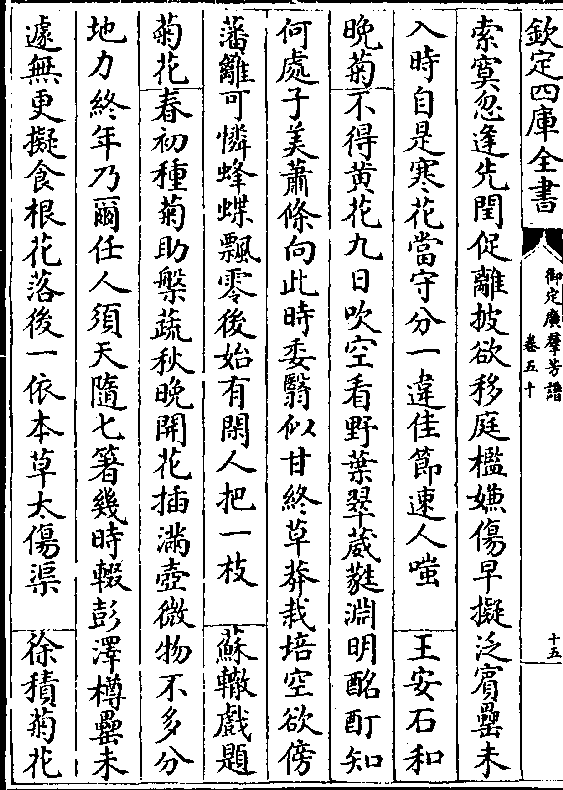 欽定四庫全書
御定廣羣芳譜
卷五十
十五
索寞忽逢先閏促離披欲移庭檻嫌傷早擬泛賓罍未
入時自是寒花當守分一違佳節速人嗤　王安石和
晚菊不得黄花九日吹空看野葉翠葳蕤淵明酩酊知
何處子美蕭條向此時委翳似甘終草莽栽培空欲傍
藩籬可憐蜂蝶飄零後始有閑人把一枝　蘇轍戲題
菊花春初種菊助槃蔬秋晚開花插滿壺微物不多分
地力終年乃爾任人須天隨匕箸幾時輟彭澤樽罍未
遽無更擬食根花落後一依本草太傷渠　徐積菊花